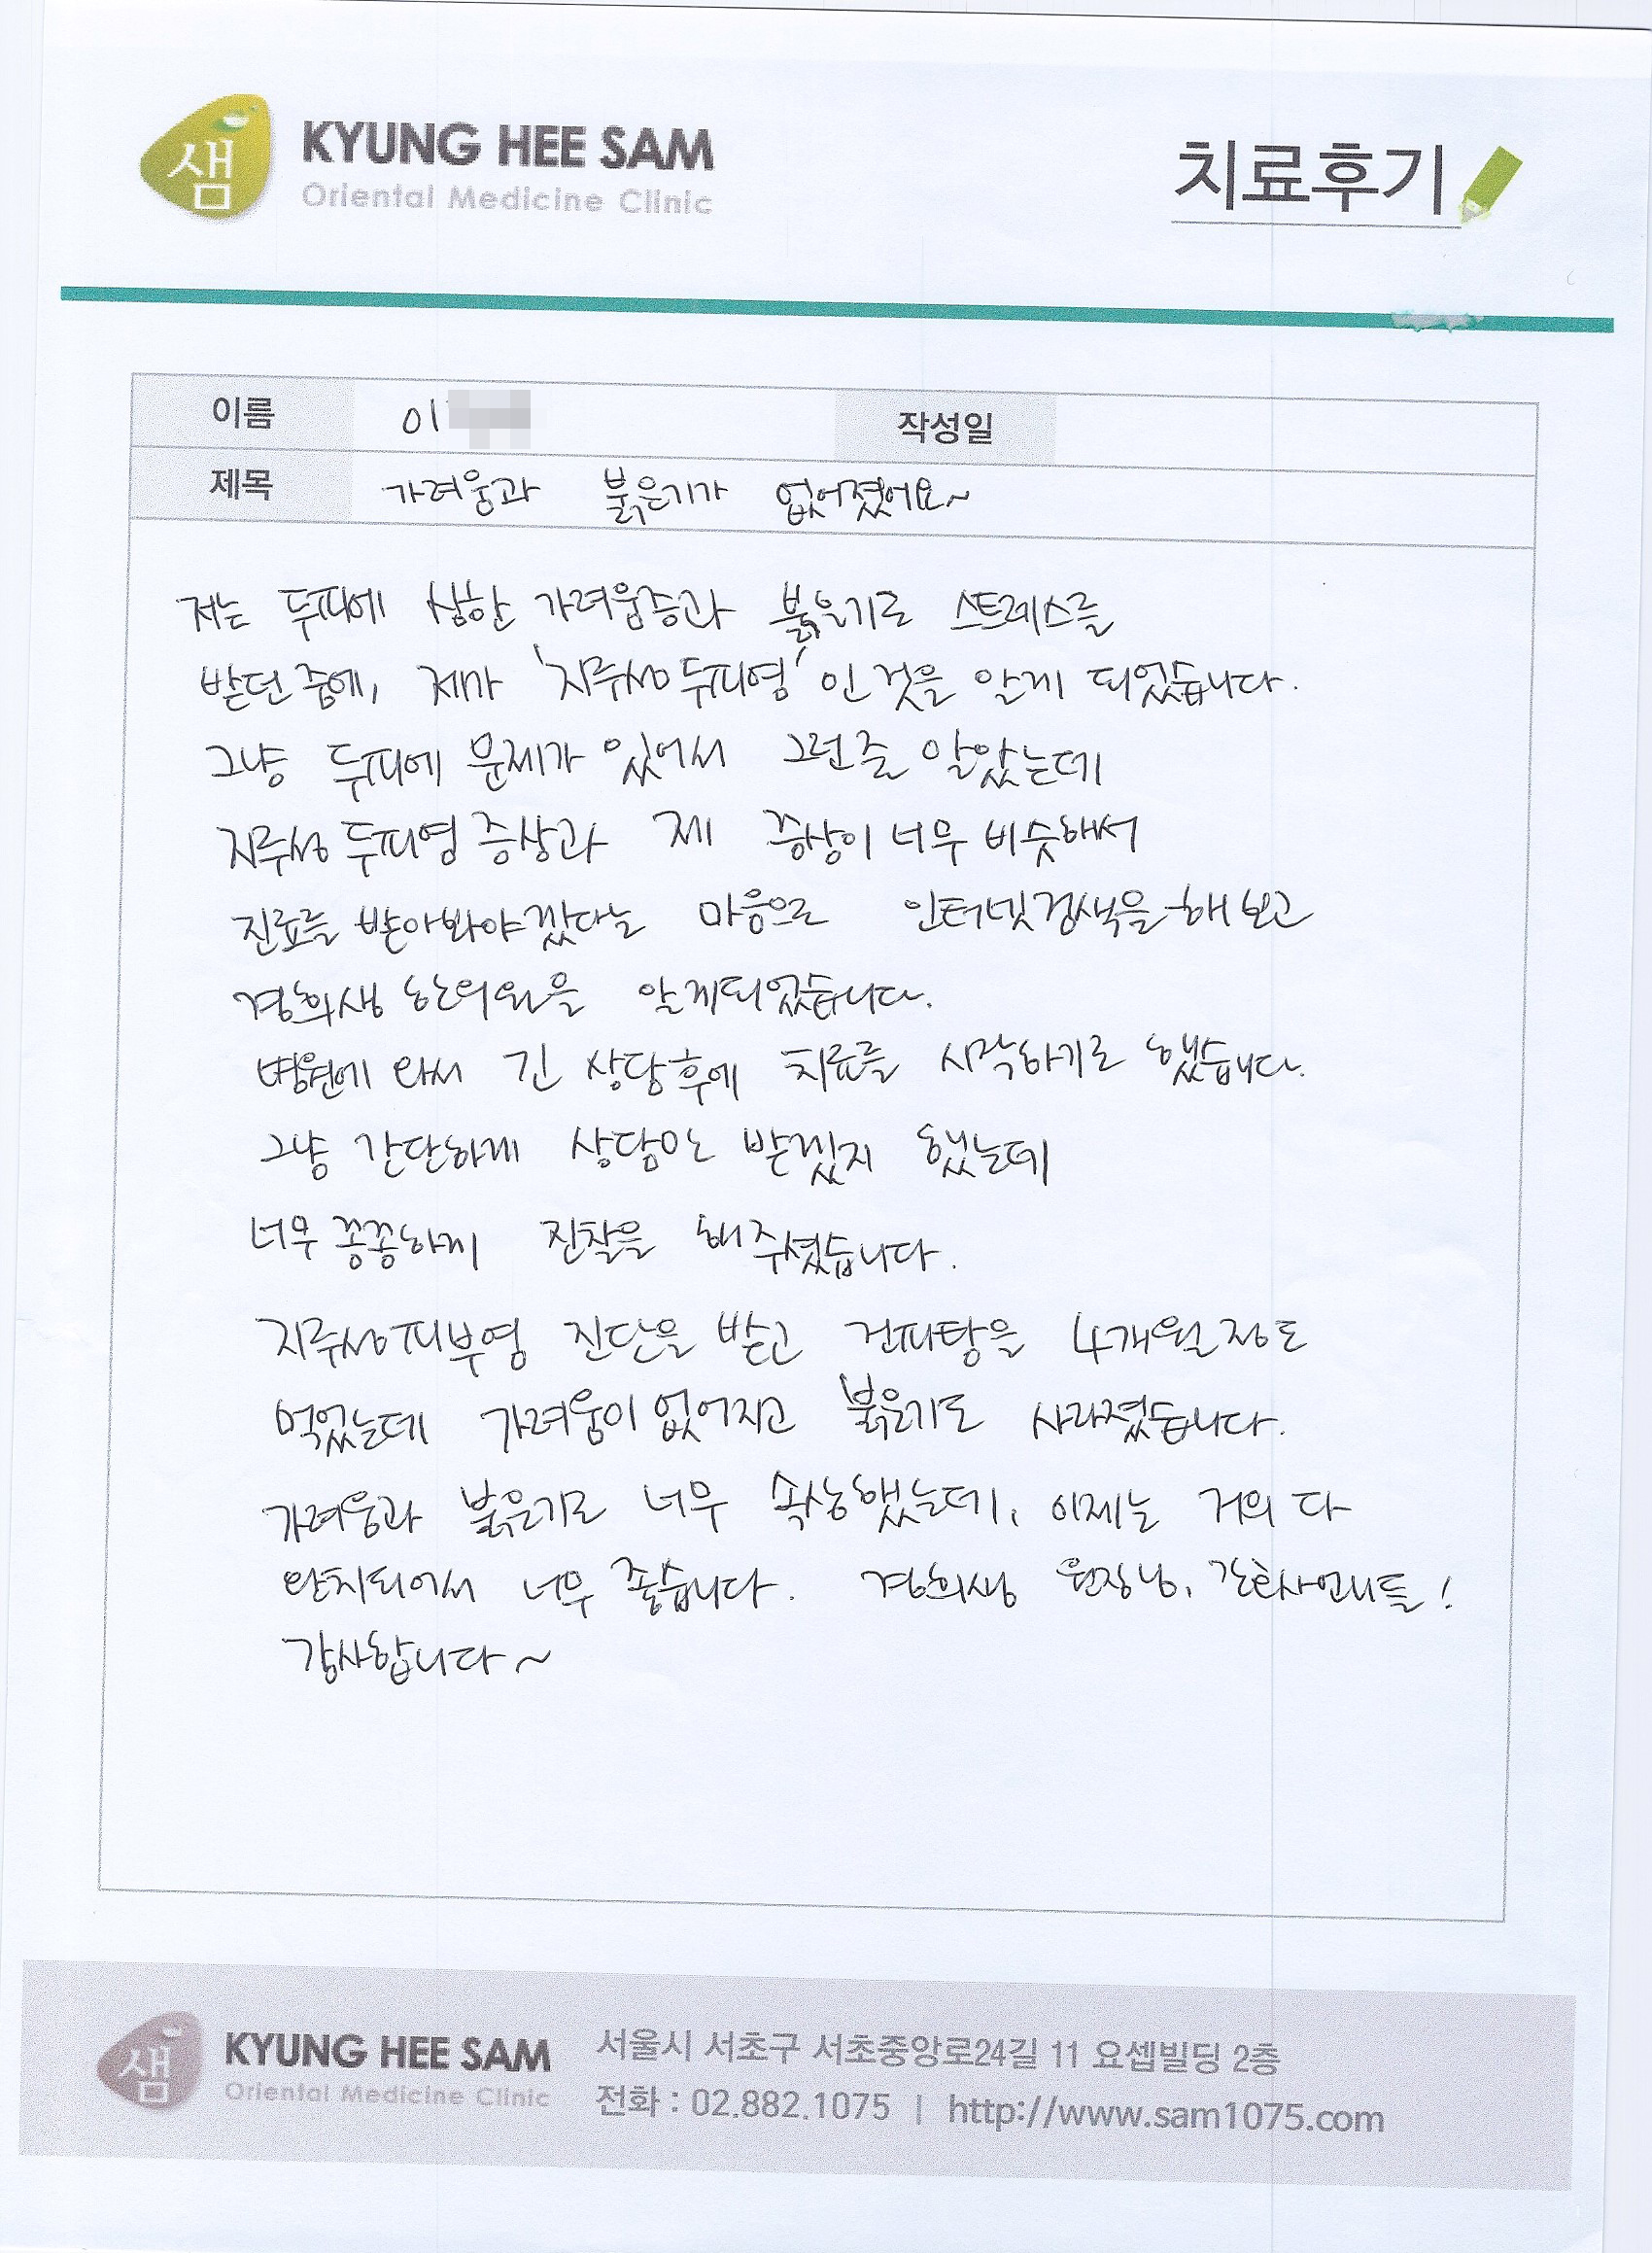 샘 KYUNG HEE SAM
Oriental Medicine Clinic
치료후기
이름 이
작성일
제목 가려움과 붉은기가 없어졌어요~
저는 두피에 심한 가려움증과 붉은기로 스트레스를
받던 중에, 제가 '지루성 두피염' 인 것을 알게 되었습니다.
그냥 두피에 문제가 있어서 그런줄 알았는데
지루성 두피염 증상과 제 증상이 너무 비슷해서
진료를 받아봐야겠다는 마음으로 인터넷 검색을 해보고
경희샘 한의원을 알게되었습니다.
병원에 와서 긴 상담후에 치료를 시작하기로 했습니다.
그냥 간단하게 상담만 받겠지 했는데
너무 꽁꽁하게 진찰을 해주셨습니다.
지루성피부염 진단을 받고 건피탕을 4개월정도
먹었는데 가려움이 없어지고 붉은기도 사라졌습니다.
가려움과 붉은기로 너무 속상했는데, 이제는 거의 다
완치되어서 너무 좋습니다. 경희샘 원장님, 간호사언니들!
감사합니다~
샘 KYUNG HEE SAM
Oriental Medicine Clinic
서울시 서초구 서초중앙로24길 11 요셉빌딩 2층
전화 : 02.882.1075 | http://www.sam1075.com